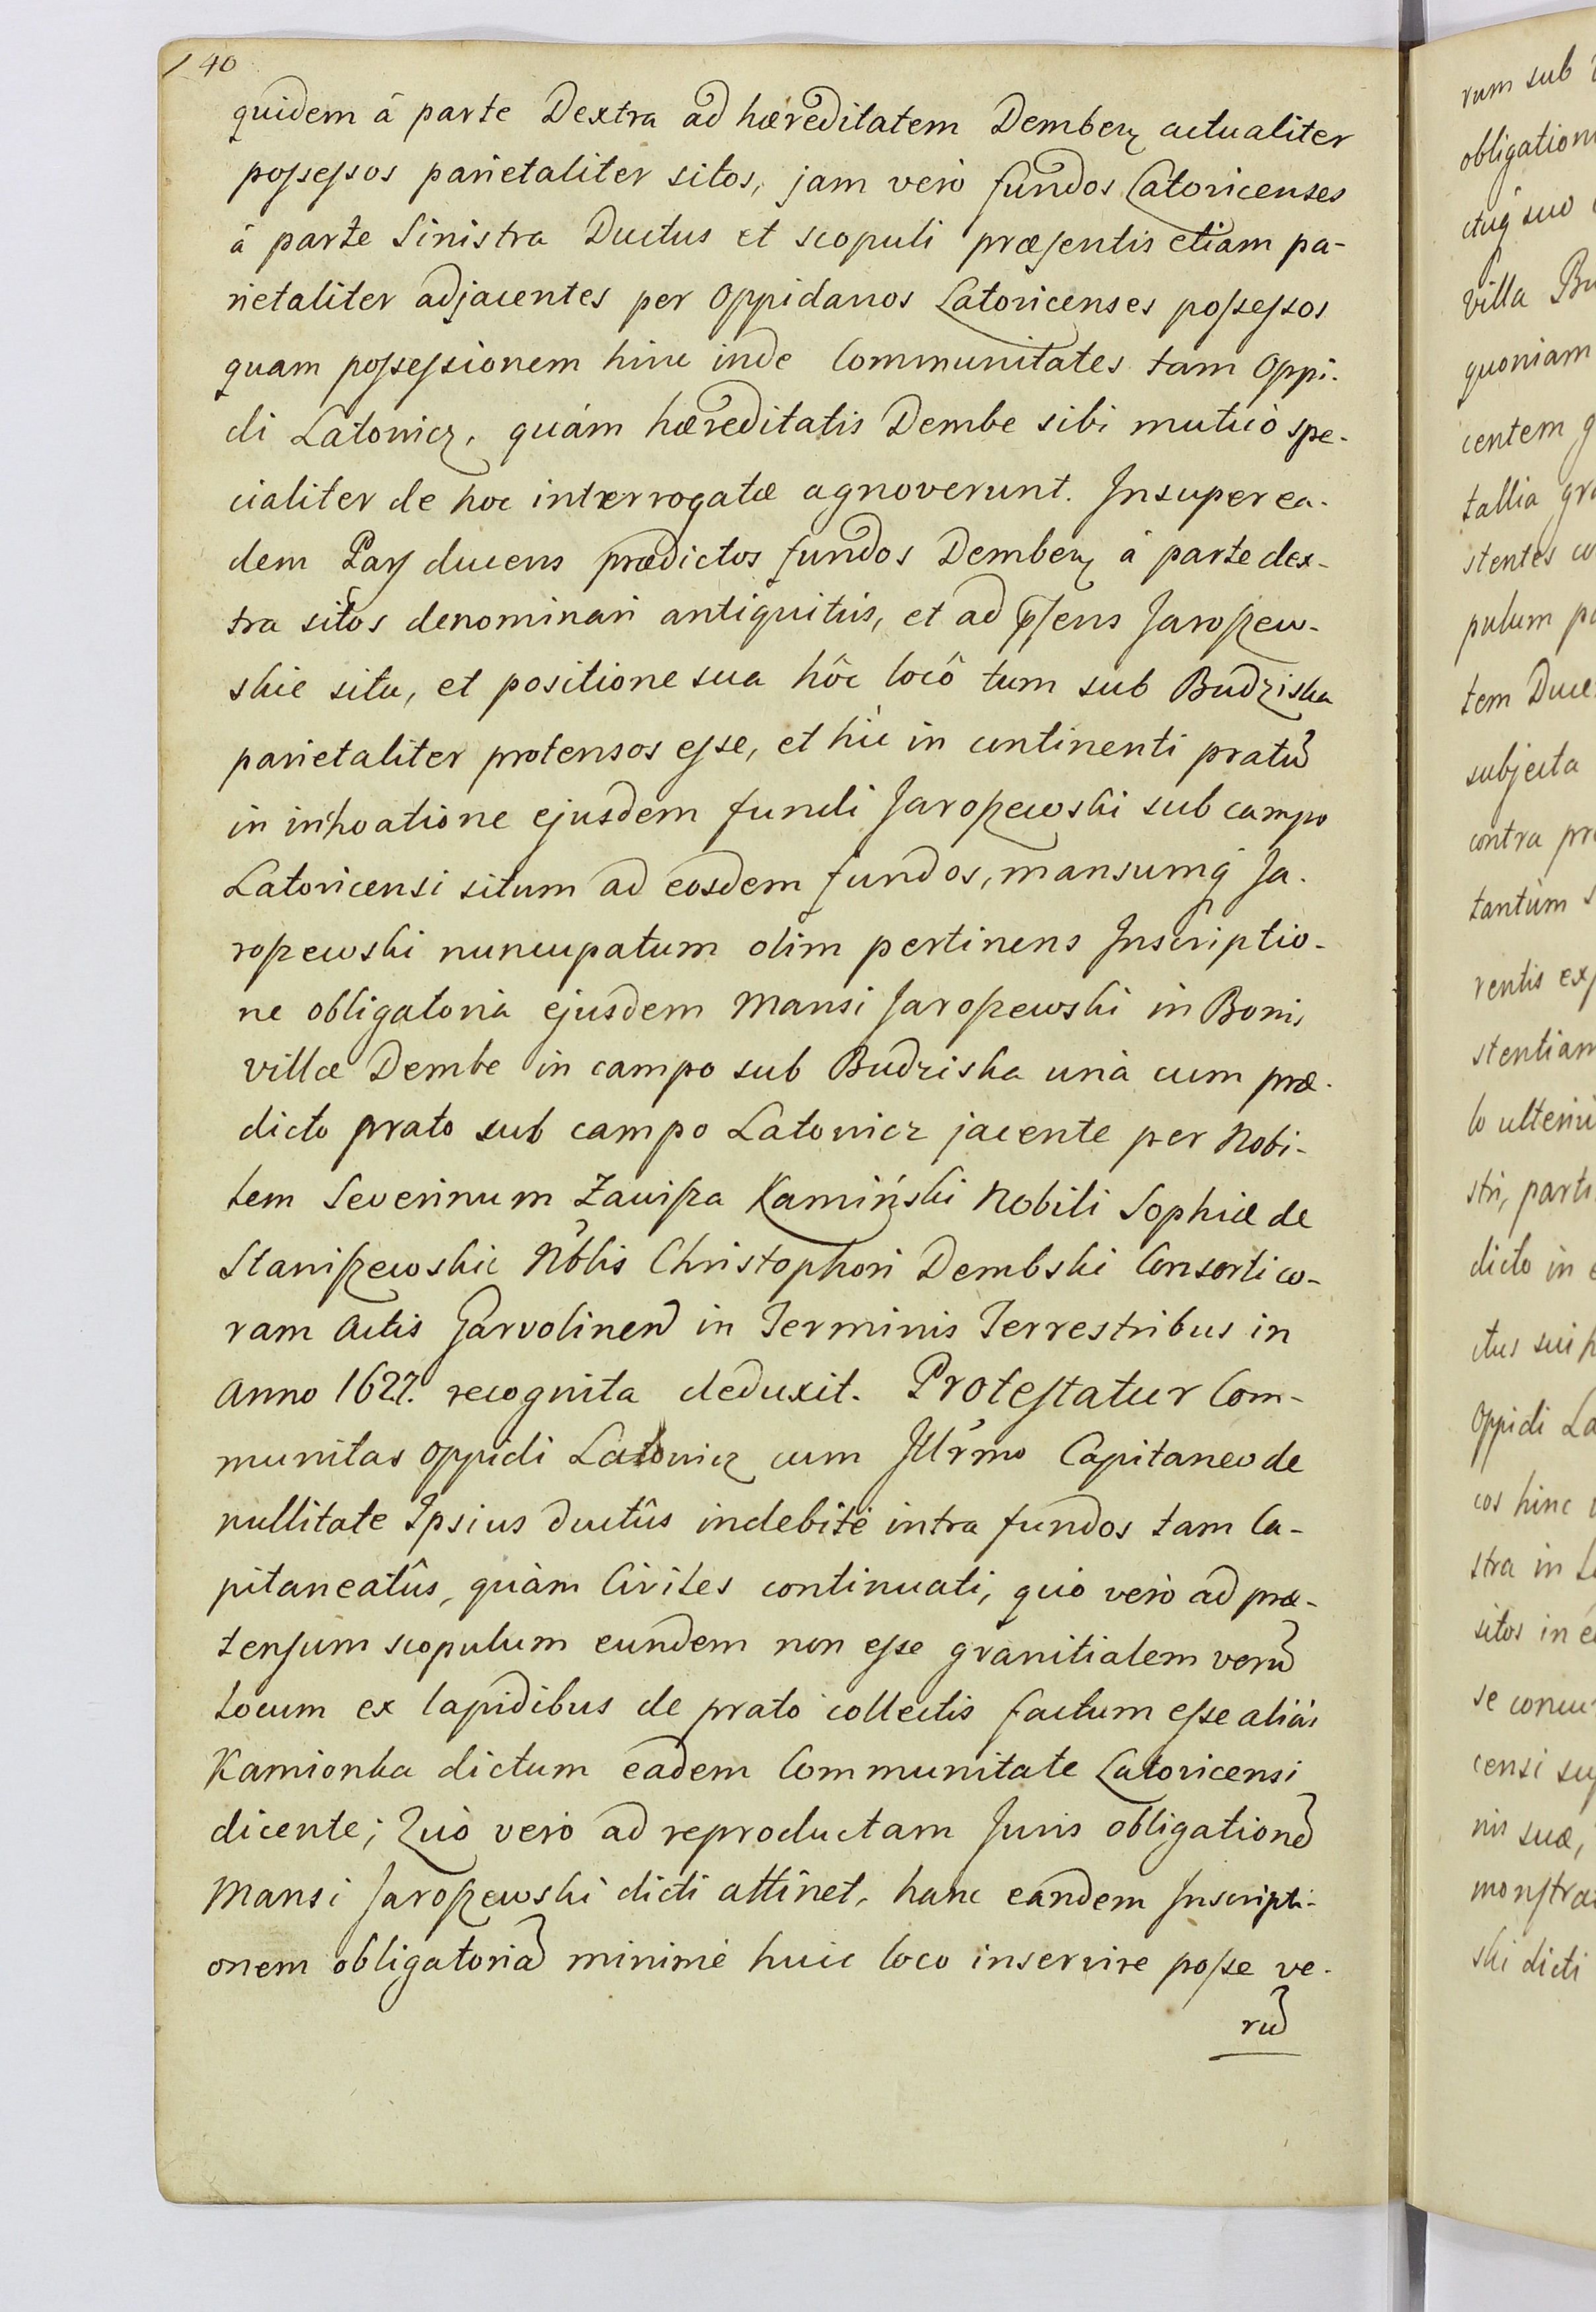 140
quidem â parte Dextra ad hæreditatem Dembez actualiter
possessos parietaliter sitos, jam verò fundos Latovicenses
â parte Sinistra Ductus et scopuli præsentis etiam pa-
rietaliter adjacentes per oppidanos Latovicenses possessos
quam possessionem hinc inde Communitates tam Oppi-
di Latovicz, quám hæreditatis Dembe sibi mutuò spe-
cialiter de hoc interrogatæ agnoverunt. Insuper ea-
dem Pars ducens prædictos fundos Dembez â parte dex-
tra sitos denominari antiquitùs, et ad pñsens Jaroszew-
skie situ, et positione sua hôc locô tum sub Budziska
parietaliter protensos esse, et hìc in continenti pratũ
in inhoatione ejusdem fundi Jaroszewski sub campo
Latovicensi situm ad eosdem fundos, mansumq́ Ja-
roszewski nuncupatum olim pertinens Inscriptio-
ne obligatoria ejusdem Mansi Jaroszewski in Bonis
villæ Dembe in campo sub Budziska unà cum præ-
dicto prato sub campo Latovicz jacente per Nobi-
lem Severinum Zawisza Kamiński Nobili Sophiæ de
Staniszewskie Nõblis Christophori Dembski Consorti co-
ram Actis Garvolinen̄ in Terminis Terrestribus in
Anno 1627. recognita deduxit. Protestatur Com-
munitas oppidi Latovicz cum Illr̃mo Capitaneo de
nullitate Ipsius ductûs indebitè intra fundos tam Ca-
pitaneatûs, quàm Civiles continuati, quo verò ad præ-
tensum scopulum eundem non esse granitialem verũ
locum ex lapidibus de prato collectis factum esse aliàs
Kamionka dictum eadem Communitate Latovicensi
dicente; Quò verò ad reproductam Juris obligationẽ
Mansi Jaroszewski dicti attinet, hanc eandem Inscripti-
onem obligatoriã minimè huic loco inservire posse ve-
rũ
rum sub
obligation
ctuq́ suo
Villa Bu
quoniam
centem
tallia gra
stentes co
pulum pa
tem Duce
subjecta
contra pr
tantùm s
rentis ex
stentiam
lo ulteriù
stri, parti
dicto in
ctus sui
Oppidi La
cos hinc
stra in
sitos in
se concu
censi su
nis suæ,
monstra
ski dicti